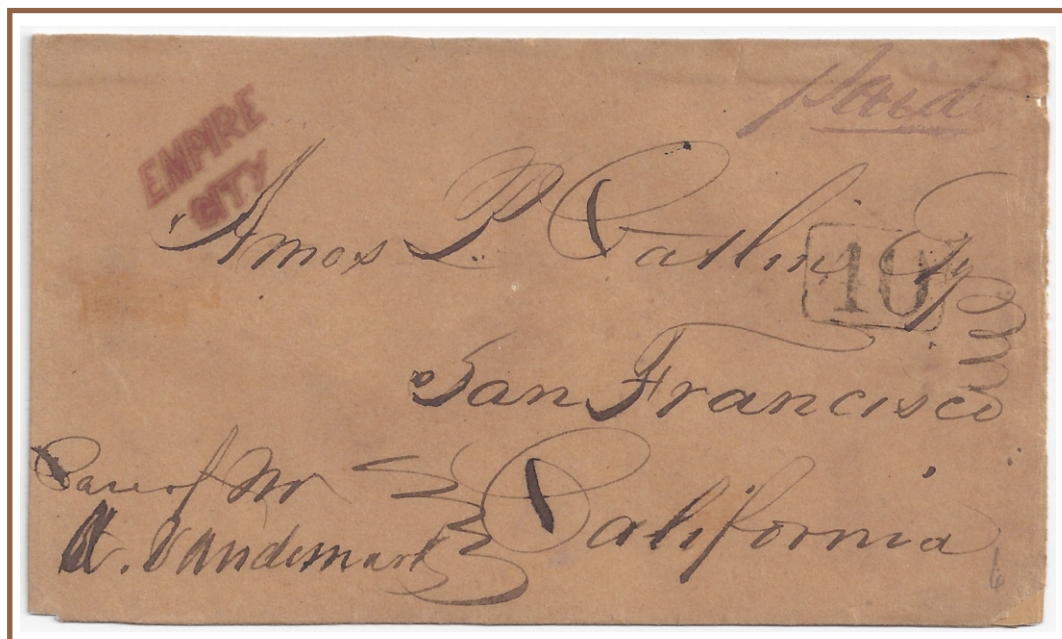 Paid
EMPIRE
CITY
Amos P. Catlin Esq
10
San Francisco
California
Care of Mr
A. Vandemark
6